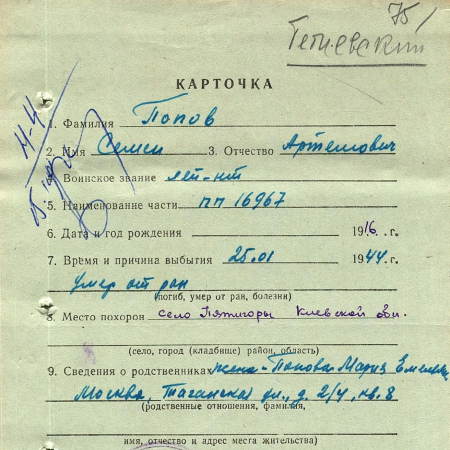 75/
КАРТОЧКА
1. Фамилия Попов
2. Имя Семен 3. Отчество Артемович
Воинское звание лей-нт
5. Наименование части пп 16967
6. Дата и год рождения 1916 . г.
7. Время и причина выбытия 25.01 1944 . г.
умер от ран
(погиб, умер от ран, болезни)
8. Место похорон село Пятигоры Киевской обл.
(село, город (кладбище) район, область)
9. Сведения о родственниках жена - Попова Мария
Москва, Таганская ул., д. 2/4, кв. 8
(родственные отношения, фамилия,
имя, отчество и адрес места жительства)